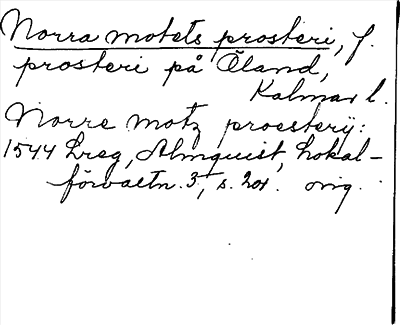 Norra motets prosteri, f.
prosteri på Öland,
Kalmar l.
Norre motz proesterÿ:
1544 Lreg, Almquist, Lokal-
förvaltn. 3, s. 201. orig.